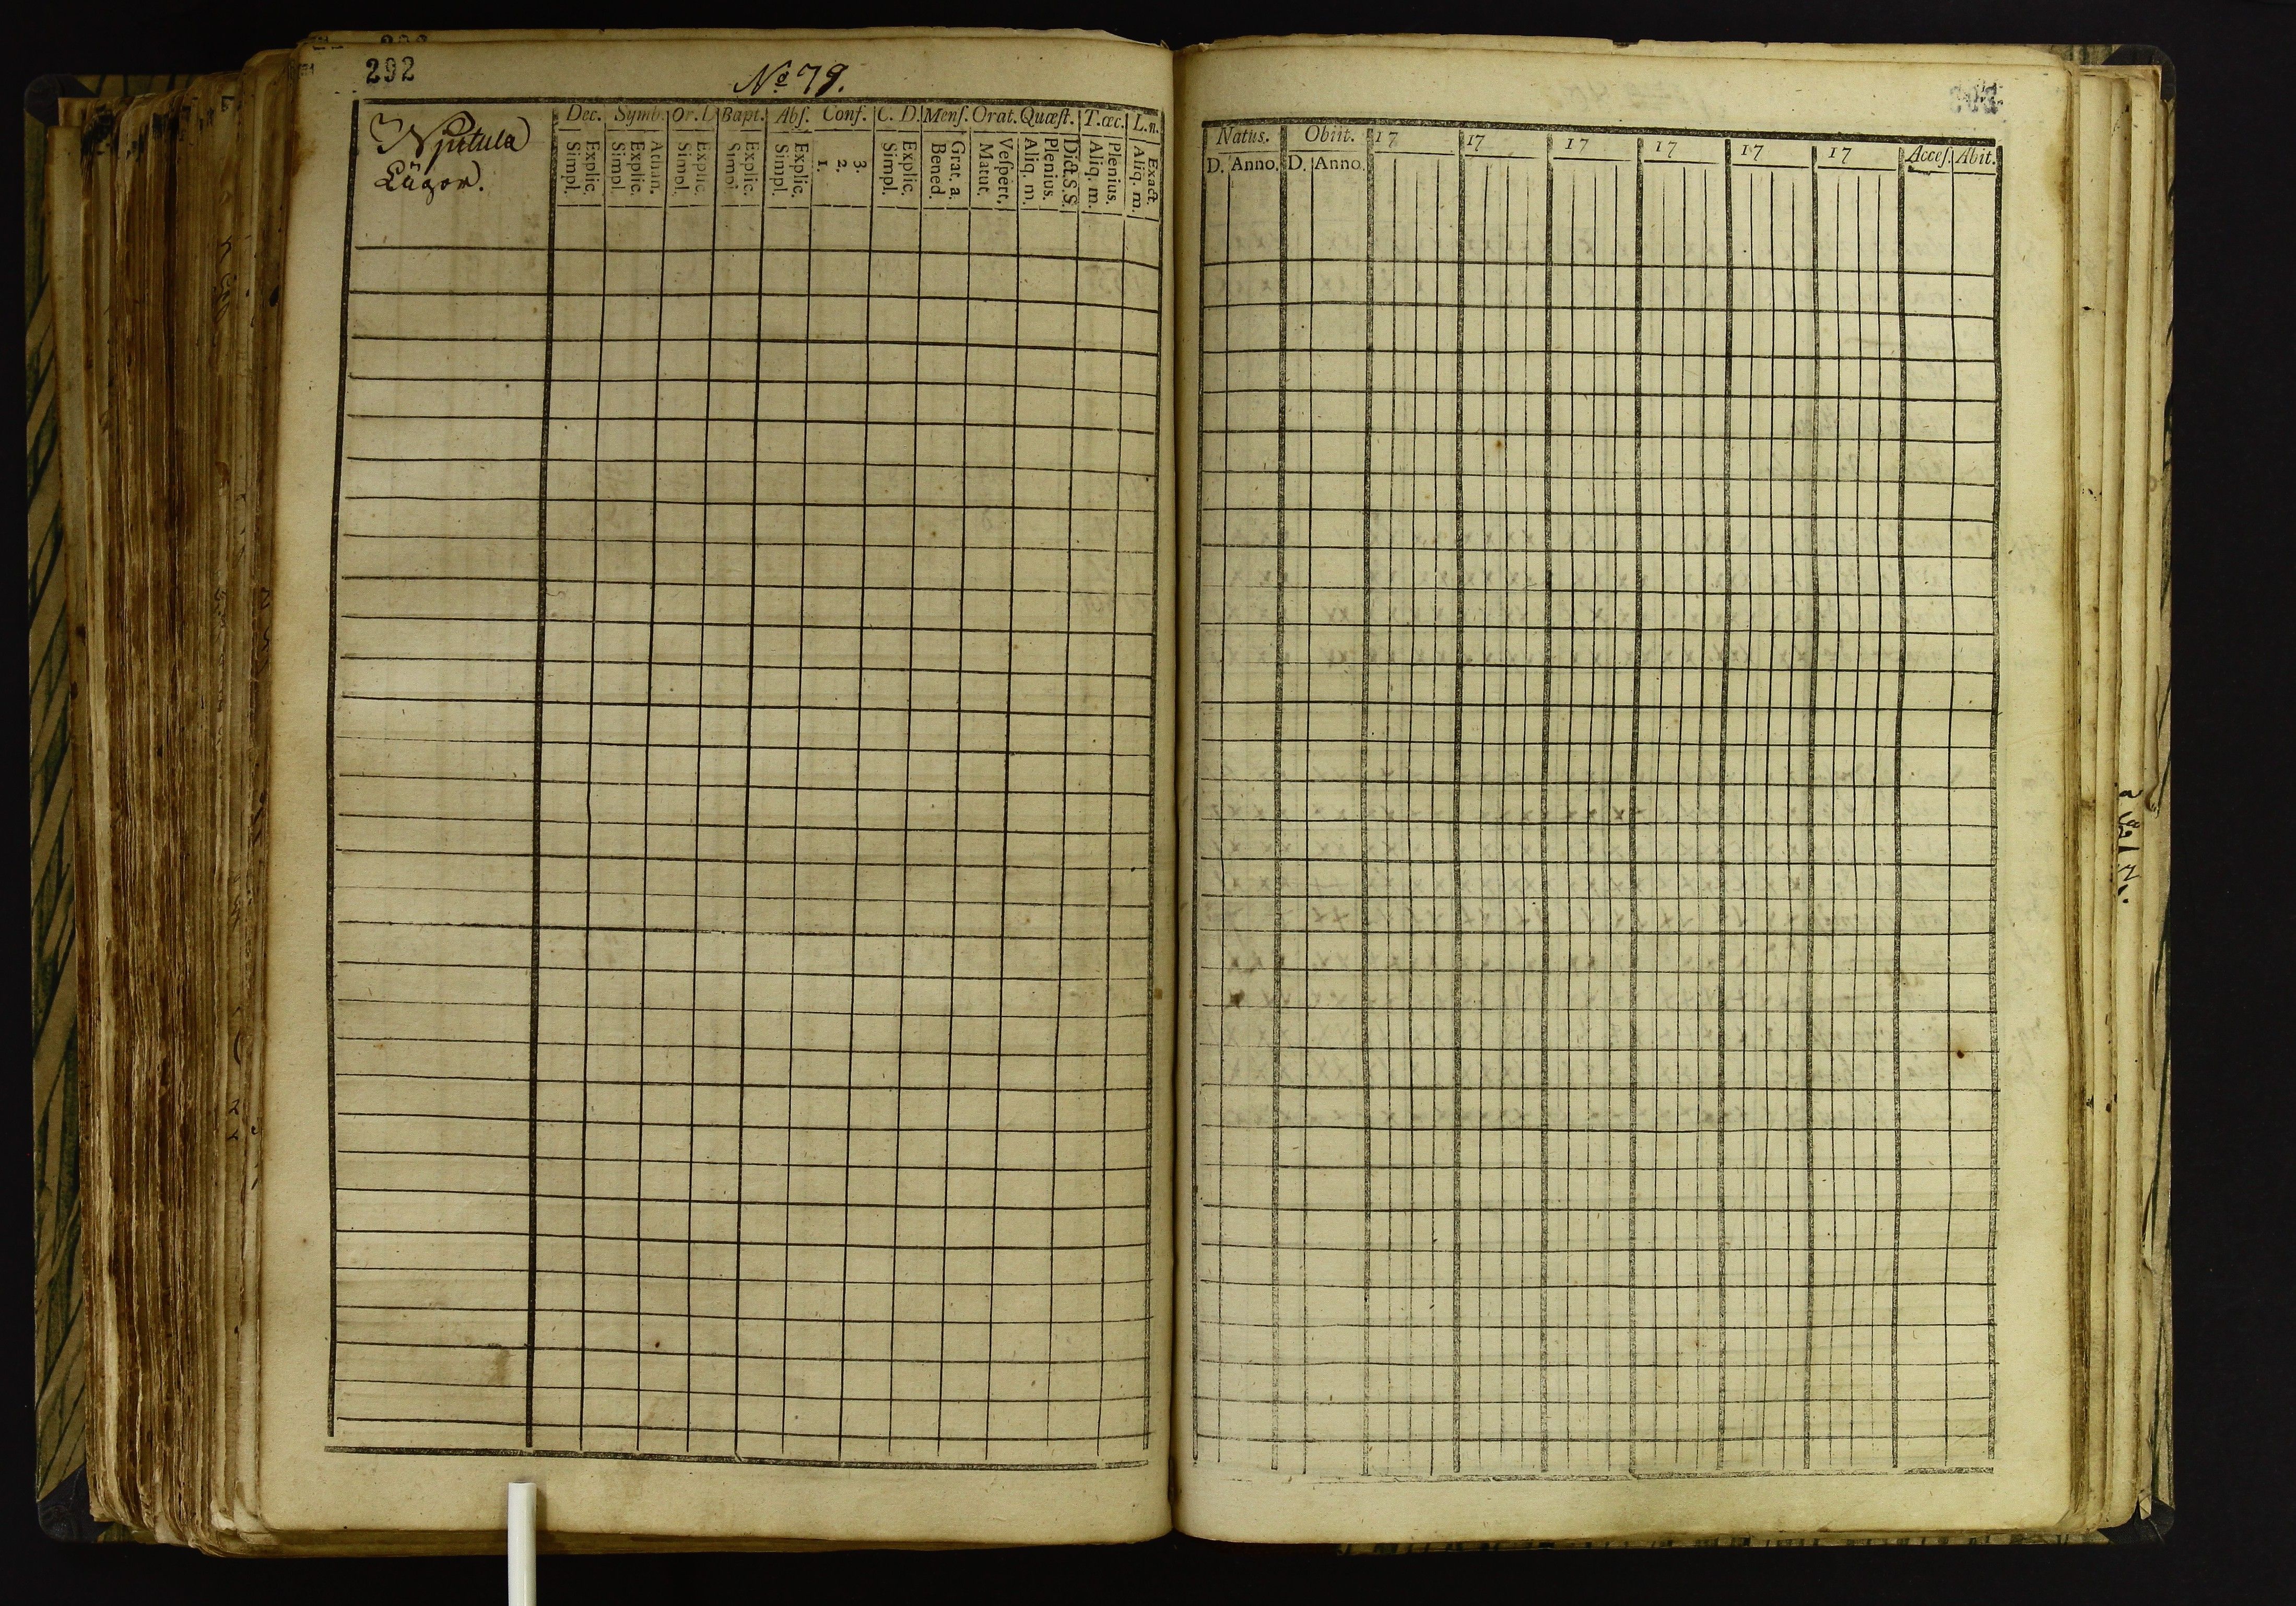 292
No 79.
Lågor.
Dec. Symb. Or. D Bapt. Abſ. Conf. C. D. Menſ. Orat. Quæſt. T. œc. L. n.
Simpl. Explic. Simpl. Explic. Athan. Simpl. Explic. Simpl. Explic. Simpl. Explic. 1. 2. 3. Simpl. Explic. Bened. Grat. a. Matut. Veſpert. Aliq. m. Plenius. Dict. S. S. Aliq. m. Plenius. Aliq. m. Exact.
Natus. Obiit. 17 17 17 17 17 17 Acceſ. Abit.
D. Anno. D. Anno.